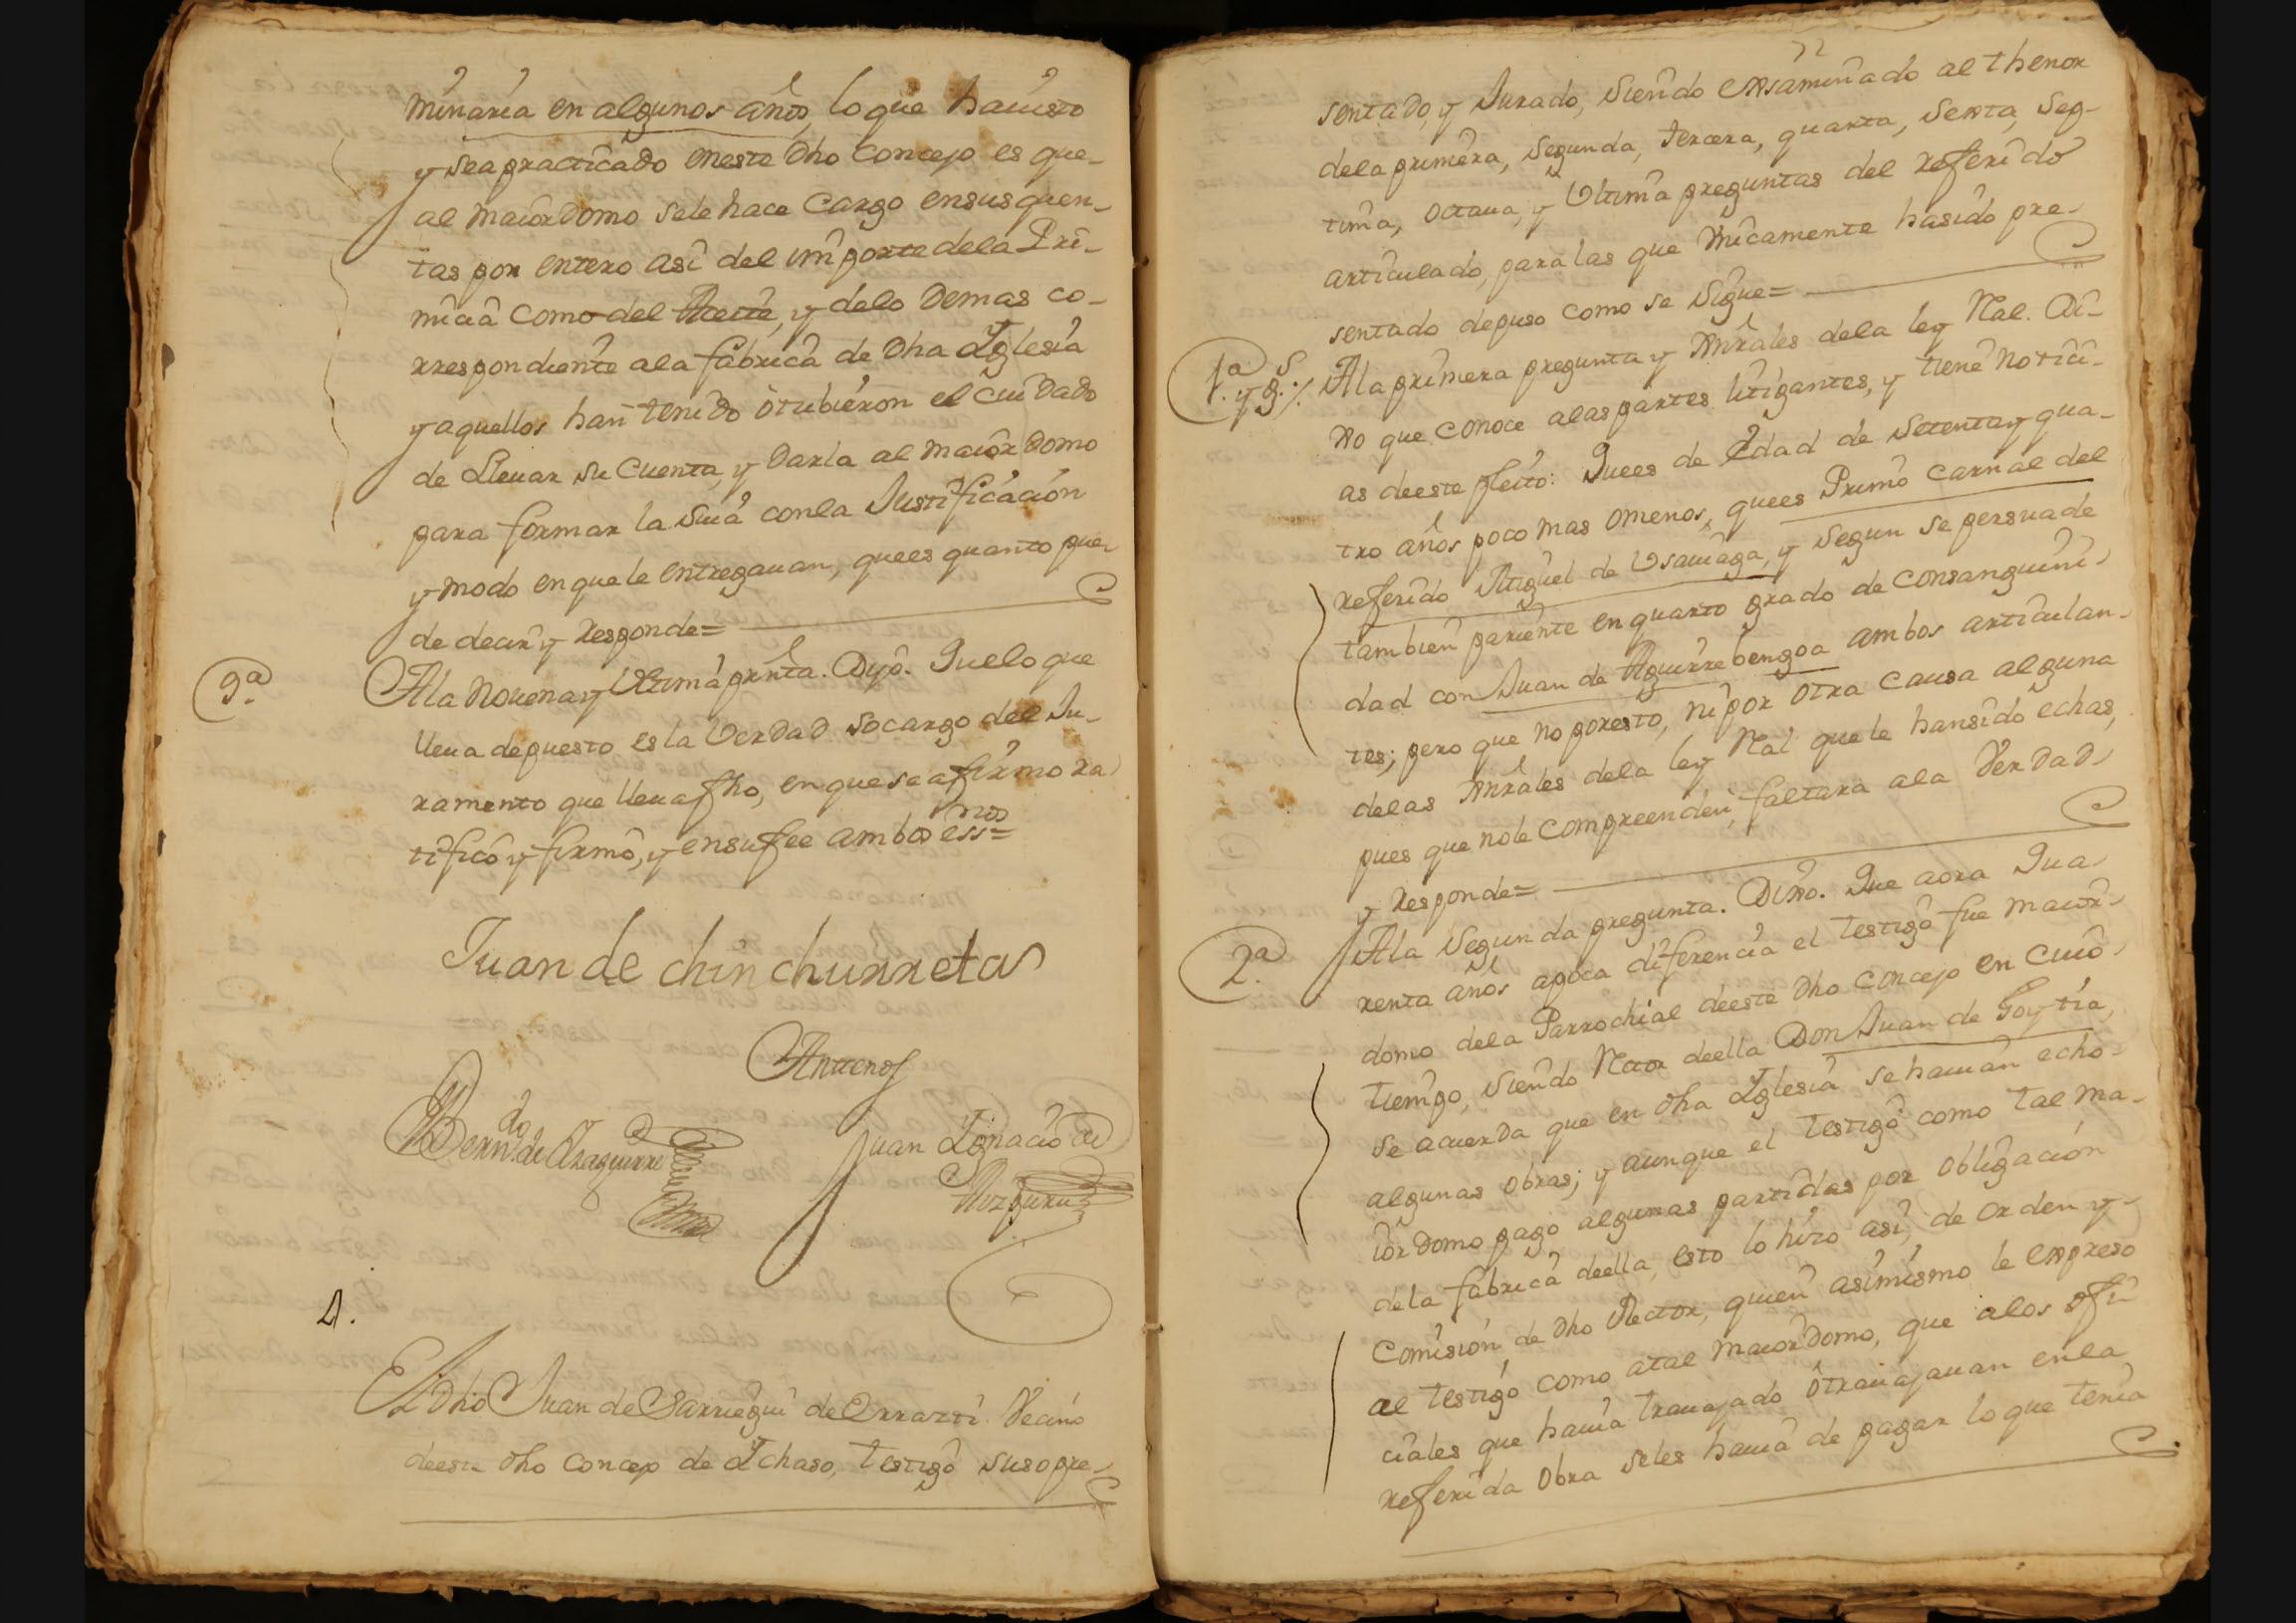 minaria en algunos años, lo que ha uisto
y sea practicado eneste dho Concejo es que
al maiordomo sele hace Cargo ensus quen-
tas por entero asi del importe dela Pri-
micia como del Aceite, y delo Demas co-
rrespondiente ala fabrica de dha Iglesia
y aquellos han tenido ô tubieron el cuidado
de Lleuar su Cuenta, y Darla al maiordomo
para formar la suia conla Justificacion
y modo en que le entregauan, quees quanto pue-
de decir y Responde=
9.ª Ala Nouena y Vltima prñta. Dijo. Que lo que
lleua depuesto es la Verdad so cargo del Ju-
ramento que lleua fho, en que se afirmo ra-
tificô y firmô, y ensufee ambos ess.nos=
Juan de chinchurreta
Antenos
Bern.do de Araguirre
Juan Ignacio de
Aizpuru
4.
El Dho Juan de Sarriegui de Orrazti Vecino
deeste dho Concejo de Ichaso, testigo suso pre-
22
sentado, y Jurado, siendo exsaminado al thenor
dela primera, segunda, tercera, quarta, sexta, sep-
tima, octaua, y Vltima preguntas del referido
articulado, para las que Vnicamente hasido pre-
sentado depuso como se sigue=
1.ª y g.s Ala primera pregunta y Gnrales dela ley Ral. Di-
xo que conoce alas partes litigantes, y tiene notici-
as deeste pleito: Quees de Edad de setenta y qua-
tro años poco mas omenos, quees Primo carnal del
referido Miguel de Vsauiaga, y segun se persuade
tambien pariente en quarto grado de consanguini-
dad con Juan de Aguirrebengoa ambos articulan-
tes; pero que no poresto, ni por otra causa alguna
delas Gnrales dela ley Ral que le hansido echas,
pues que nole compreenden, faltara ala Verdad
y Responde=
2.ª Ala segunda pregunta. Dixo. Que aora Qua-
renta años apoca diferencia el testigo fue maior-
domo dela Parrochial deeste dho concejo en cuio
tiempo, siendo Rtor deella Don Juan de Goytia,
se acuerda que en dha Iglesia se hauian echo
algunas obras; y aunque el testigo como tal ma-
iordomo pago algunas partidas por obligacion
dela fabrica deella, esto lo hizo asi, de orden y
Comision de dho Rector, quien asimismo le expreso
al testigo como atal maiordomo, que alos ofi-
ciales que hauia trauajado ô trauajauan enla
referida obra seles hauia de pagar lo que tenia